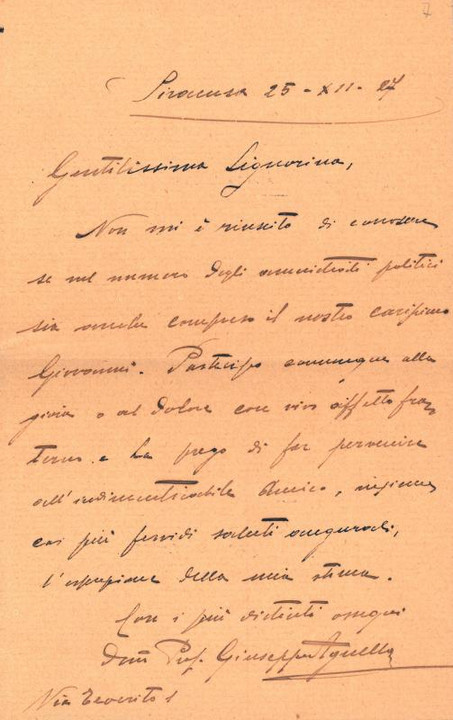 7
Siracusa 25-XII-27
Gentilissima Signorina,
Non mi è riuscito di conoscere
se nel numero degli amnistiati politici
sia anche compreso il nostro carissimo
Giovanni. Partecipo comunque alla
gioia o al dolore con vivo affetto fra
terno e La prego di far pervenire
all'indimenticabile Amico, insieme
coi più fervidi saluti augurali,
l'espressione della mia stima.
Con i più distinti ossequi
Dev Prof. Giuseppe Agnello
Via Teocrito 1